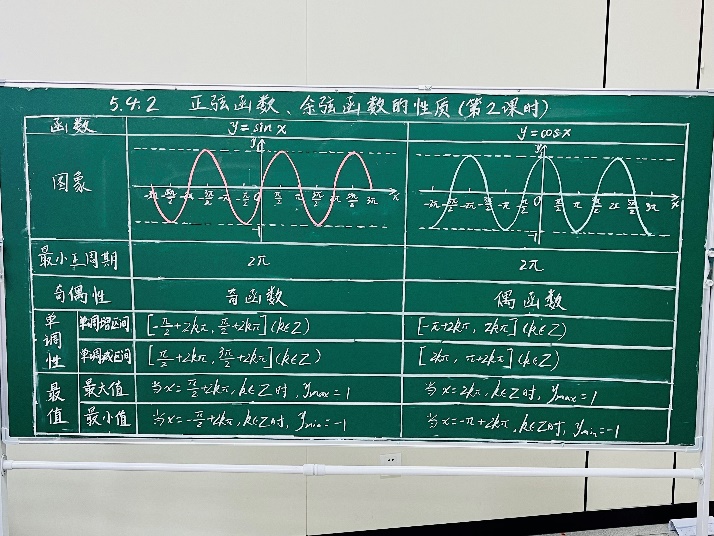 5.4.2 正弦函数、余弦函数的性质(第2课时)
函数 y=sin x y=cosx
图象
y 1 -1 0 x
-3π -5π/2 -2π -3π/2 -π -π/2 π/2 π 3π/2 2π 5π/2 3π
y 1 -1 0 x
-3π -5π/2 -2π -3π/2 -π -π/2 π/2 π 3π/2 2π 5π/2 3π
最小正周期 2π 2π
奇偶性 奇函数 偶函数
单调性
单调增区间 [-π/2+2kπ, π/2+2kπ](k∈Z) [-π+2kπ, 2kπ](k∈Z)
单调减区间 [π/2+2kπ, 3π/2+2kπ](k∈Z) [2kπ, π+2kπ](k∈Z)
最值
最大值 当x=π/2+2kπ,k∈Z时, ymax=1 当x=2kπ,k∈Z时, ymax=1
最小值 当x=-π/2+2kπ,k∈Z时, ymin=-1 当x=-π+2kπ,k∈Z时, ymin=-1